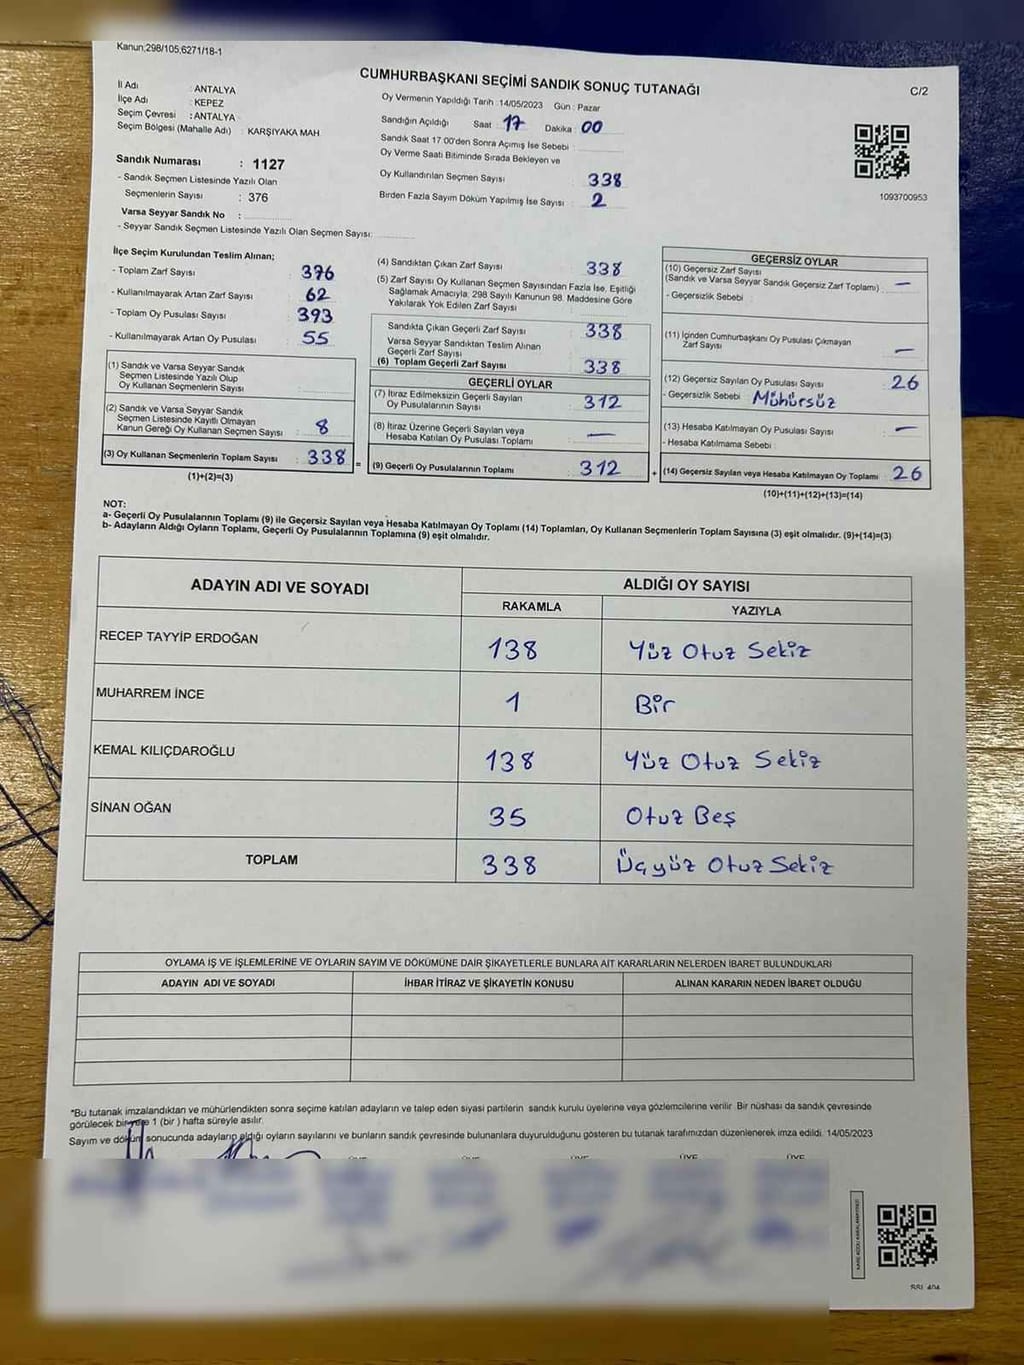 Kanun;298/105;6271/18-1
CUMHURBAŞKANI SEÇİMİ SANDIK SONUÇ TUTANAĞI
C/2
İl Adı : ANTALYA
İlçe Adı : KEPEZ
Seçim Çevresi : ANTALYA
Seçim Bölgesi (Mahalle Adı) : KARŞIYAKA MAH
Sandık Numarası : 1127
- Sandık Seçmen Listesinde Yazılı Olan
Seçmenlerin Sayısı : 376
Varsa Seyyar Sandık No :
- Seyyar Sandık Seçmen Listesinde Yazılı Olan Seçmen Sayısı:
Oy Vermenin Yapıldığı Tarih : 14/05/2023 Gün : Pazar
Sandığın Açıldığı Saat 17 Dakika 00
Sandık Saat 17:00'den Sonra Açımış İse Sebebi :
Oy Verme Saati Bitiminde Sırada Bekleyen ve
Oy Kullandırılan Seçmen Sayısı : 338
Birden Fazla Sayım Döküm Yapılmış İse Sayısı : 2
1093700953
İlçe Seçim Kurulundan Teslim Alınan;
- Toplam Zarf Sayısı : 376
- Kullanılmayarak Artan Zarf Sayısı : 62
- Toplam Oy Pusulası Sayısı : 393
- Kullanılmayarak Artan Oy Pusulası : 55
(1) Sandık ve Varsa Seyyar Sandık
Seçmen Listesinde Yazılı Olup
Oy Kullanan Seçmenlerin Sayısı :
(2) Sandık ve Varsa Seyyar Sandık
Seçmen Listesinde Kayıtlı Olmayan
Kanun Gereği Oy Kullanan Seçmen Sayısı : 8
(3) Oy Kullanan Seçmenlerin Toplam Sayısı : 338
(1)+(2)=(3)
(4) Sandıktan Çıkan Zarf Sayısı : 338
(5) Zarf Sayısı Oy Kullanan Seçmen Sayısından Fazla İse, Eşitliği
Sağlamak Amacıyla, 298 Sayılı Kanunun 98. Maddesine Göre
Yakılarak Yok Edilen Zarf Sayısı :
Sandıkta Çıkan Geçerli Zarf Sayısı : 338
Varsa Seyyar Sandıktan Teslim Alınan
Geçerli Zarf Sayısı :
(6) Toplam Geçerli Zarf Sayısı : 338
GEÇERLİ OYLAR
(7) İtiraz Edilmeksizin Geçerli Sayılan
Oy Pusulalarının Sayısı : 312
(8) İtiraz Üzerine Geçerli Sayılan veya
Hesaba Katılan Oy Pusulası Toplamı : —
= (9) Geçerli Oy Pusulalarının Toplamı : 312
GEÇERSİZ OYLAR
(10) Geçersiz Zarf Sayısı
(Sandık ve Varsa Seyyar Sandık Geçersiz Zarf Toplamı) : —
- Geçersizlik Sebebi :
(11) İçinden Cumhurbaşkanı Oy Pusulası Çıkmayan
Zarf Sayısı : —
(12) Geçersiz Sayılan Oy Pusulası Sayısı : 26
- Geçersizlik Sebebi : Mühürsüz
(13) Hesaba Katılmayan Oy Pusulası Sayısı : —
- Hesaba Katılmama Sebebi :
+ (14) Geçersiz Sayılan veya Hesaba Katılmayan Oy Toplamı : 26
(10)+(11)+(12)+(13)=(14)
NOT:
a- Geçerli Oy Pusulalarının Toplamı (9) ile Geçersiz Sayılan veya Hesaba Katılmayan Oy Toplamı (14) Toplamları, Oy Kullanan Seçmenlerin Toplam Sayısına (3) eşit olmalıdır. (9)+(14)=(3)
b- Adayların Aldığı Oyların Toplamı, Geçerli Oy Pusulalarının Toplamına (9) eşit olmalıdır.
ADAYIN ADI VE SOYADI ALDIĞI OY SAYISI
RAKAMLA YAZIYLA
RECEP TAYYİP ERDOĞAN 138 Yüz Otuz Sekiz
MUHARREM İNCE 1 Bir
KEMAL KILIÇDAROĞLU 138 Yüz Otuz Sekiz
SİNAN OĞAN 35 Otuz Beş
TOPLAM 338 Üçyüz Otuz Sekiz
OYLAMA İŞ VE İŞLEMLERİNE VE OYLARIN SAYIM VE DÖKÜMÜNE DAİR ŞİKAYETLERLE BUNLARA AİT KARARLARIN NELERDEN İBARET BULUNDUKLARI
ADAYIN ADI VE SOYADI İHBAR İTİRAZ VE ŞİKAYETİN KONUSU ALINAN KARARIN NEDEN İBARET OLDUĞU
*Bu tutanak imzalandıktan ve mühürlendikten sonra seçime katılan adayların ve talep eden siyasi partilerin sandık kurulu üyelerine veya gözlemcilerine verilir. Bir nüshası da sandık çevresinde
görülecek bir yere 1 (bir ) hafta süreyle asılır.
Sayım ve döküm sonucunda adayların aldığı oyların sayılarını ve bunların sandık çevresinde bulunanlara duyurulduğunu gösteren bu tutanak tarafımızdan düzenlenerek imza edildi. 14/05/2023
ÜYE ÜYE ÜYE ÜYE ÜYE